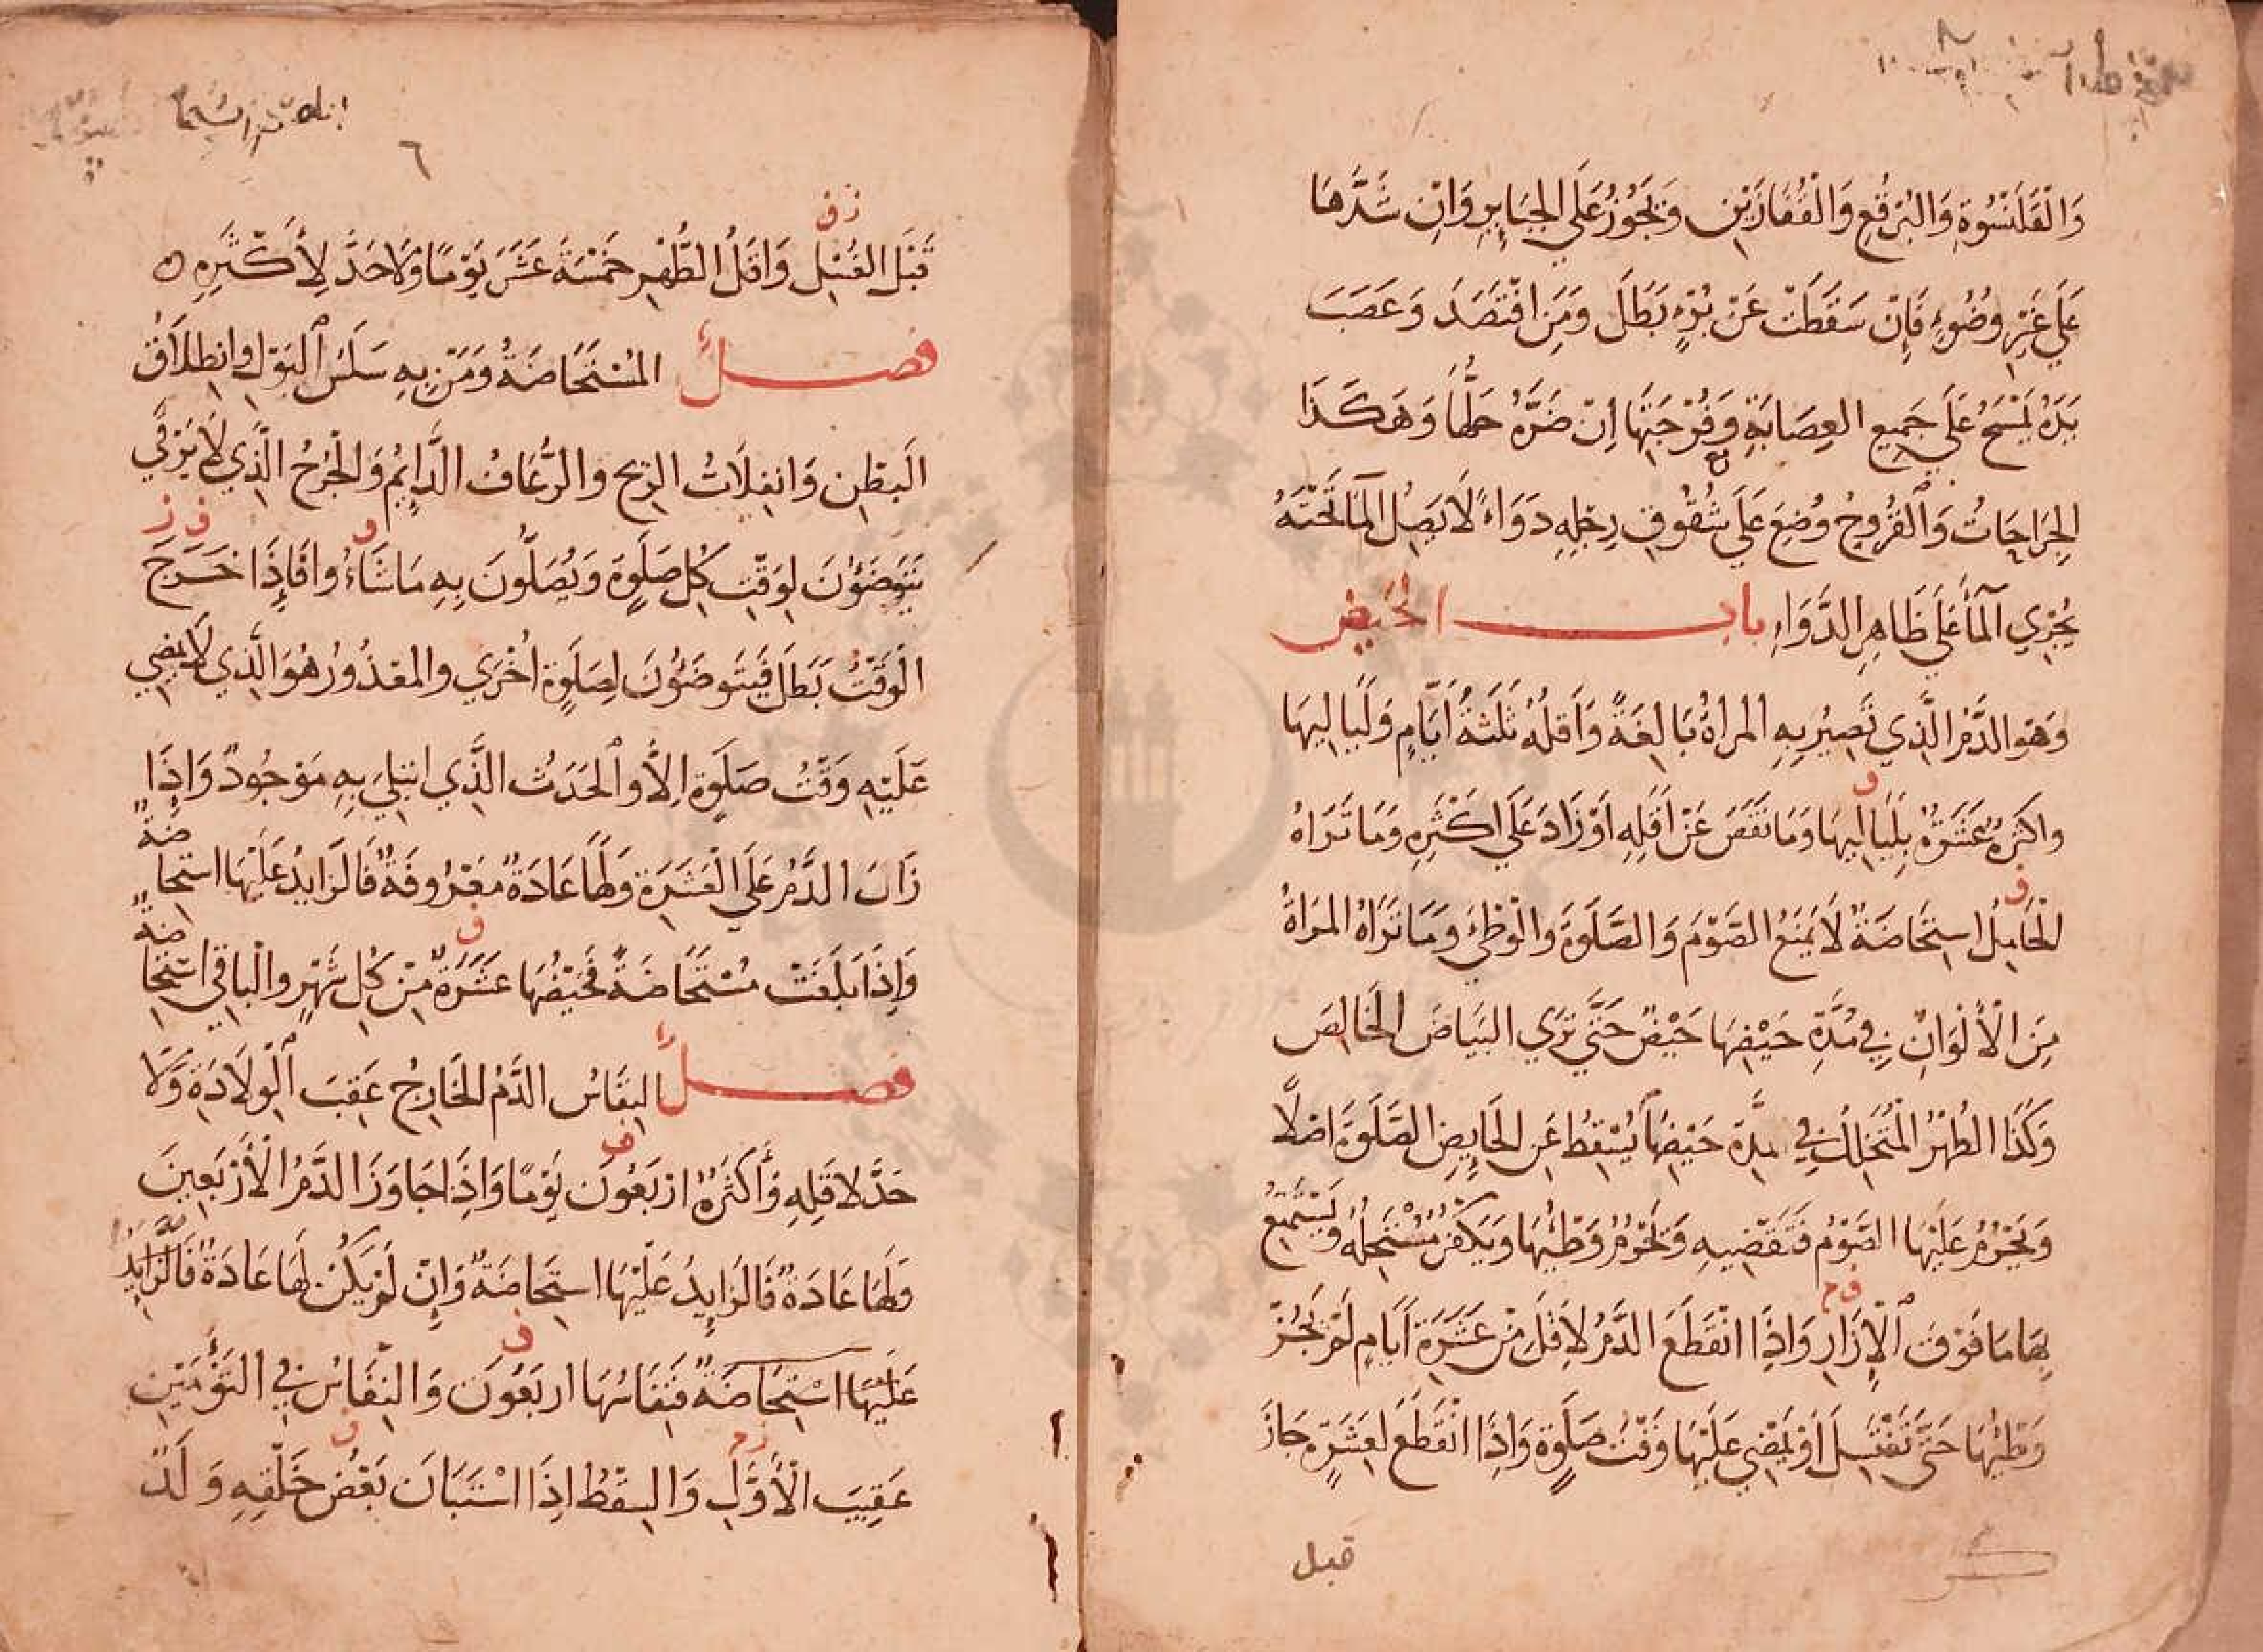 وَالْقَلَنْسُوةِ وَالبُرْقُعِ وَالْقُفَّازَيْنِ وَيَجُوزُ عَلَى الجَبَايِرِ وَاِنْ شَدَّهَا
عَلَى غَيْرِ وُضُوءٍ فَاِنْ سَقَطَتْ عَنْ بُرْءٍ بَطَلَ وَمَنِ افْتَصَدَ وَعَصَبَ
يَدَهُ يَمْسَحُ عَلَى جَمِيعِ العِصَابَةِ وَفُرْجَتِهَا اِنْ ضَرَّهُ حَلُّهَا وَهَكَذَا
الجِرَاحَاتُ وَالْقُرُوحُ وُضِعَ عَلَى شُقُوقِ رِجْلِهِ دَوَاءً لَا يَصِلُ المَآ تَحْتَهُ
يُجْرِي اَلْمَآ عَلَى ظَاهِرِ الدَّوَاءِ بَابُ الحَيْضِ
وَهْوَ الدَّمُ الَّذِي تَصِيرُ بِهِ المَرْاَةُ بَالِغَةً وَاَقَلُّهُ ثَلَثَةُ اَيَّامٍ وَلَيَالِيهَا
وَاكْثَرُهُ عَشَرَةٌ بِلَيَالِيهَا وَمَا نَقَصَ عَنْ اَقَلِّهِ اَوْ زَادَ عَلَى اكْثَرِهِ وَمَا تَرَاهُ
الْحَامِلُ اسْتِحَاضَةٌ لَا يَمْنَعُ الصَّوْمَ وَالصَّلَوةَ وَالْوَطْيَ وَمَا تَرَاهُ المَرْاَةُ
مِنَ الْأَلْوَانِ فِي مُدَّةِ حَيْضِهَا حَيْضٌ حَتَّى تَرَى البَيَاضَ الخَالِصَ
وَكَذَا الطُهْرُ الْمُتَخَلِّلُ فِي مُدَّةِ حَيْضِهَا يُسْقِطُ عَنِ الحَايِضِ الصَّلَوةَ اصْلًا
وَيَحْرُمُ عَلَيْهَا الصَّوْمُ فَتَقْضِيهِ وَيَحْرُمُ وَطْيُهَا وَيَكْفُرُ مُسْتَحِلُّهُ وَيَسْتَمْتِعُ
بِهَا مَا فَوْقَ اَلْإِزَارِ وَاِذَا انْقَطَعَ الدَّمُ لِأَقَلَّ مِنْ عَشَرَةِ اَيَّامٍ لَمْ يَجُزْ
وَطْيُهَا حَتَّى تَغْتَسِلَ أَوْ يَمْضِيَ عَلَيْهَا وَقْتُ صَلَوةٍ وَاِذَا انْقَطَعَ لِعَشَرَةٍ جَازَ
قبل
٦
قَبْلَ الغُسْلِ وَاَقَلُّ الطُّهْرِ خَمْسَةَ عَشَرَ يَوْمًا وَلَا حَدَّ لِأَكْثَرِهِ
فصل المُسْتَحَاضَةُ وَمَنْ بِهِ سَلَسُ البَوْلِ وَانْطِلَاقُ
الْبَطْنِ وَانْفِلَاتُ الرِّيحِ وَالرُّعَافُ الدَّايِمُ وَالْجُرْحُ الَّذِي لَا يَرْقَى
يَتَوَضَّؤُنَ لِوَقْتِ كُلِّ صَلَوةٍ وَيُصَلُّونَ بِهِ مَا شَاءُوا فَإِذَا خَرَجَ
الْوَقْتُ بَطَلَ فَيَتَوَضَّؤُنَ لِصَلَوةٍ اُخْرَى وَالمَعْذُورُ هُوَ الَّذِي لَا يَمْضِي
عَلَيْهِ وَقْتُ صَلَوةٍ اِلاَّ وَالْحَدَثُ الَّذِي ابْتُلِيَ بِهِ مَوْجُودٌ وَاِذَا
زَادَ الدَّمُ عَلَى الْعَشَرَةِ وَلَهَا عَادَةٌ مَعْرُوفَةٌ فَالزَايِدُ عَلَيْهَا اسْتِحَاضَةٌ
وَاِذَا بَلَغَتْ مُسْتَحَاضَةً فَحَيْضُهَا عَشَرَةٌ مِنْ كُلِّ شَهْرٍ وَالْبَاقِي اسْتِحَاضَةٌ
فصل النِفَاسُ الدَّمُ الخَارِجُ عَقِبَ الْوِلَادَةِ وَلَا
حَدَّ لِاقَلِّهِ وَأَكْثَرُهُ ارْبَعُونَ يَوْمًا وَاِذَا جَاوَزَ الدَّمُ الْأَرْبَعِينَ
وَلَهَا عَادَةٌ فَالزَايِدُ عَلَيْهَا اسْتِحَاضَةٌ وَإِنْ لَمْ يَكُنْ لَهَا عَادَةٌ فَالزَّايِدُ
عَلَيْهَا اسْتِحَاضَةٌ فَنِفَاسُهَا ارْبَعُونَ وَالنِّفَاسُ فِي التَّوْءَمَيْنِ
عَقِيبَ الْأَوَّلِ وَالسِقْطُ اِذَا اسْتَبَانَ بَعْضُ خَلْقِهِ وَلَدٌ